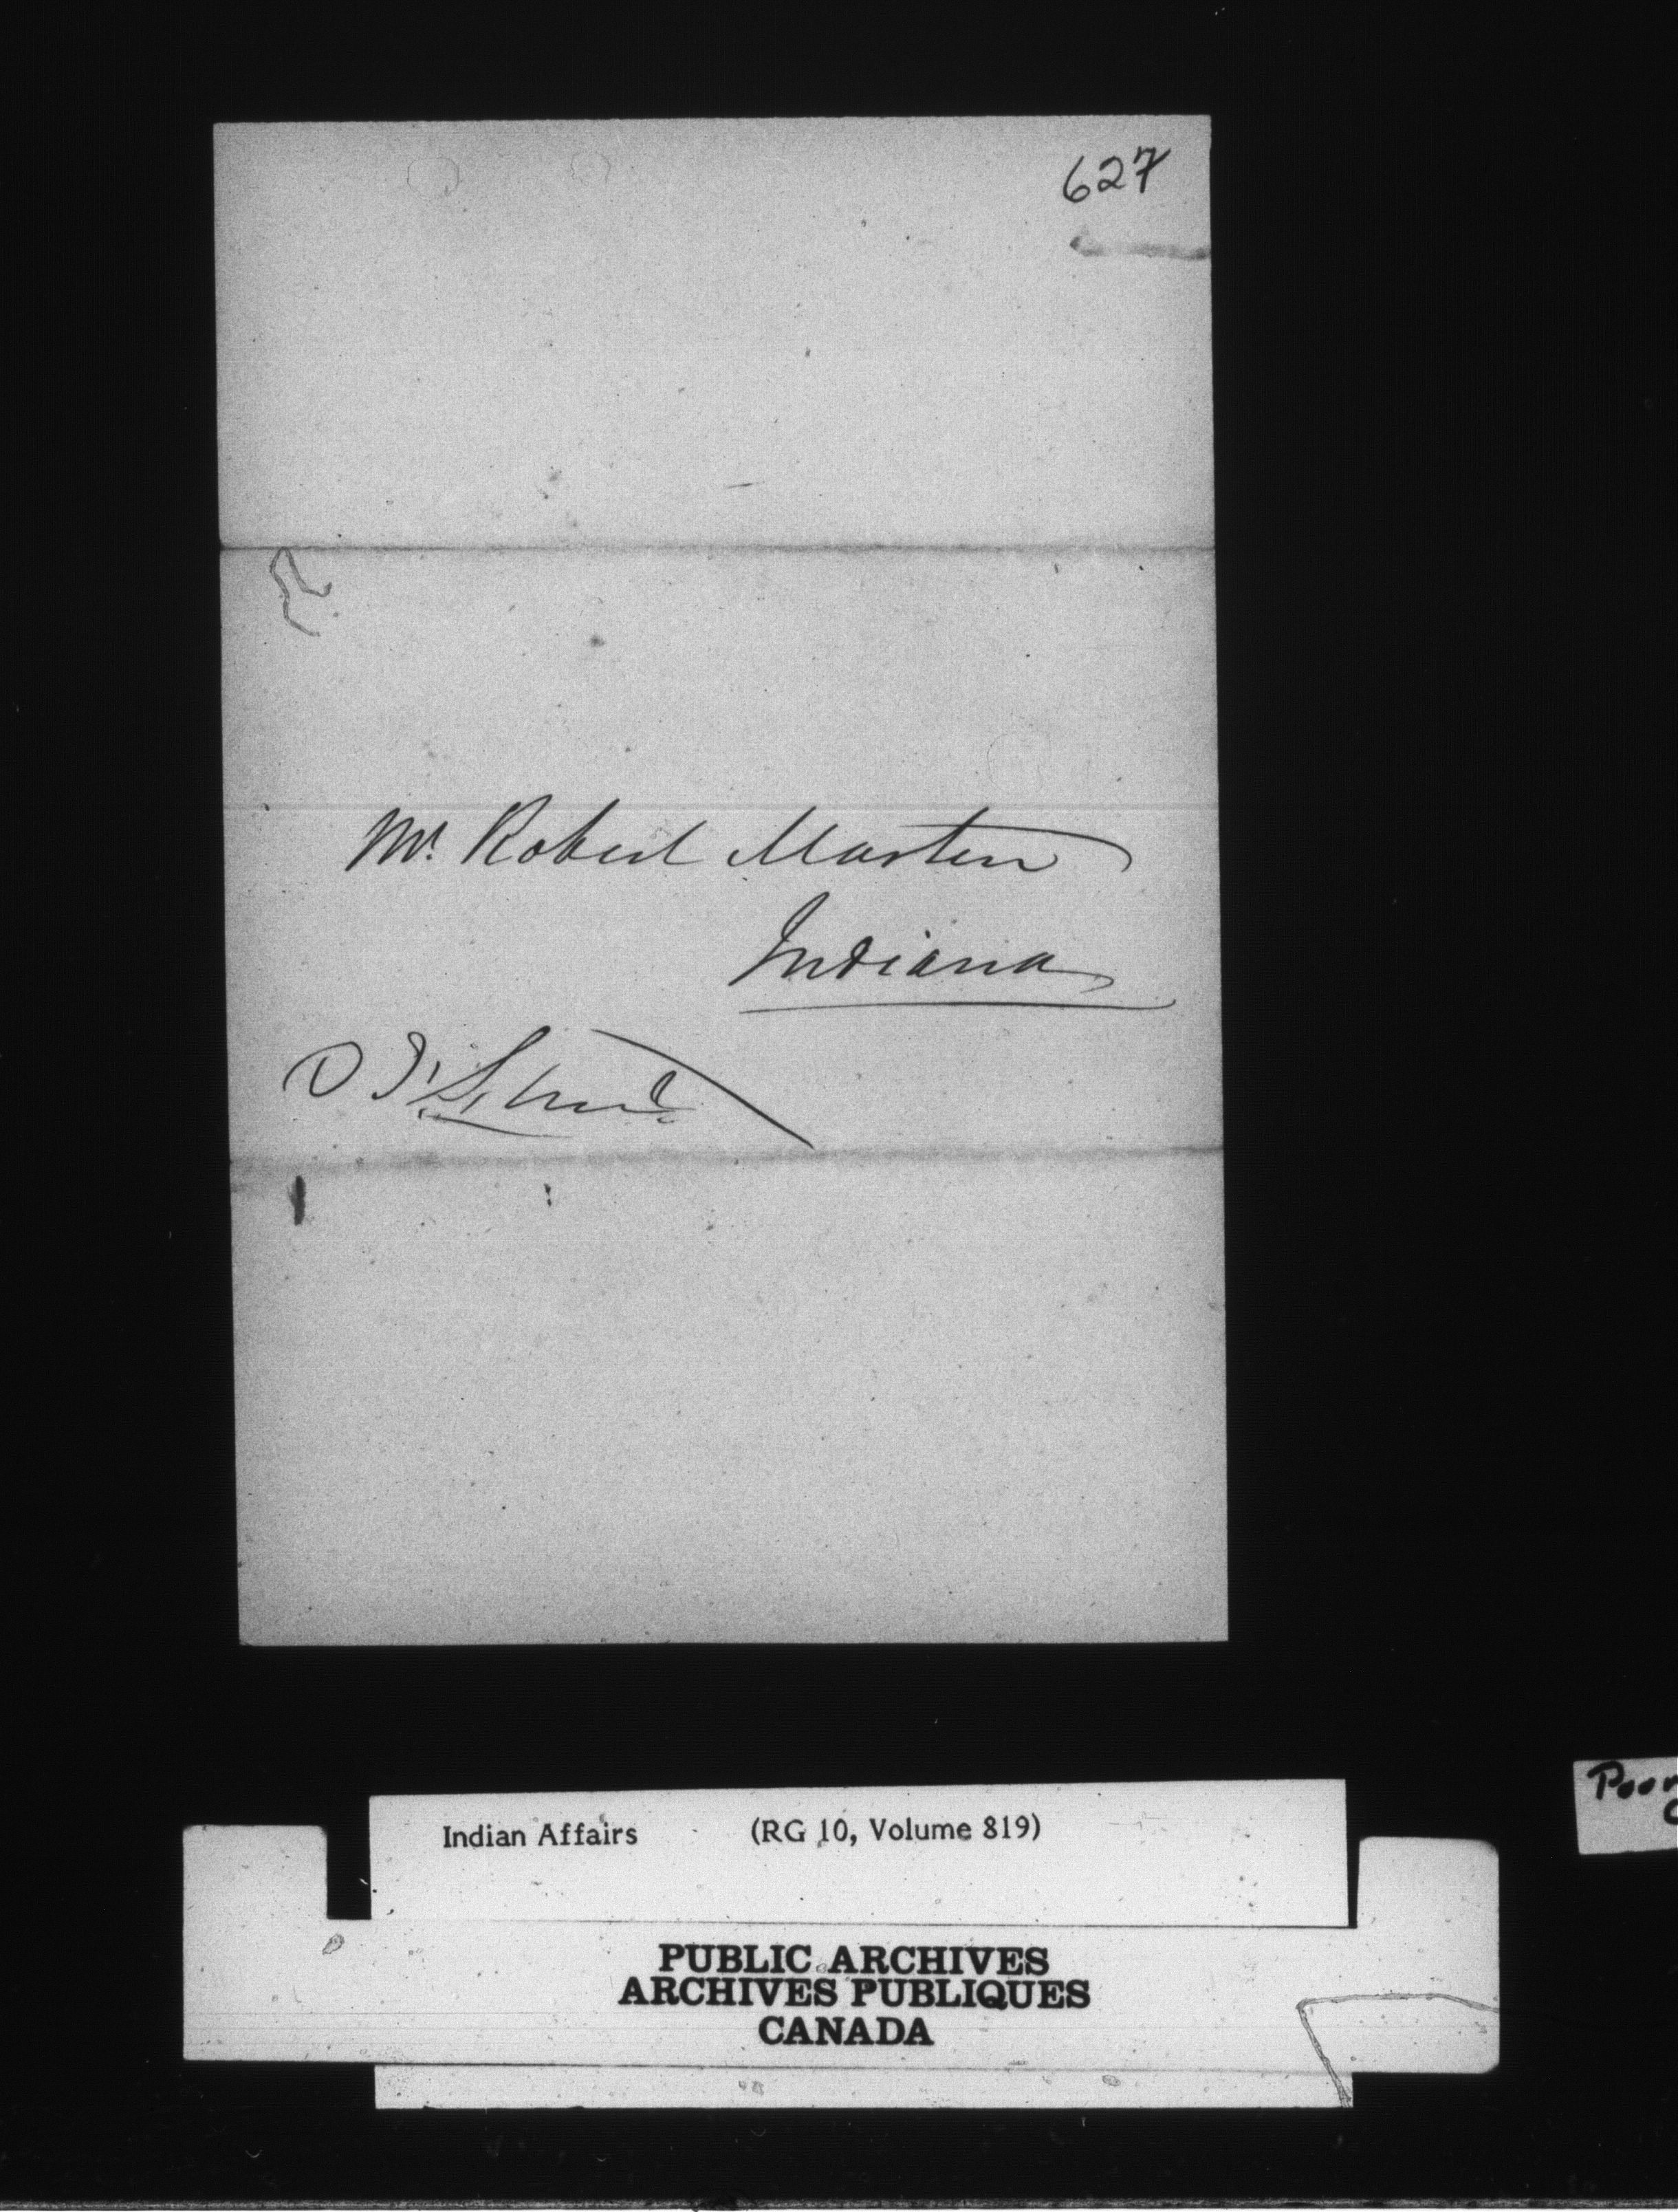 627
Mr. Robert Marten
Indiana
Indian Affairs (RG 10, Volume 819)
PUBLIC ARCHIVES
ARCHIVES PUBLIQUES
CANADA
Poor